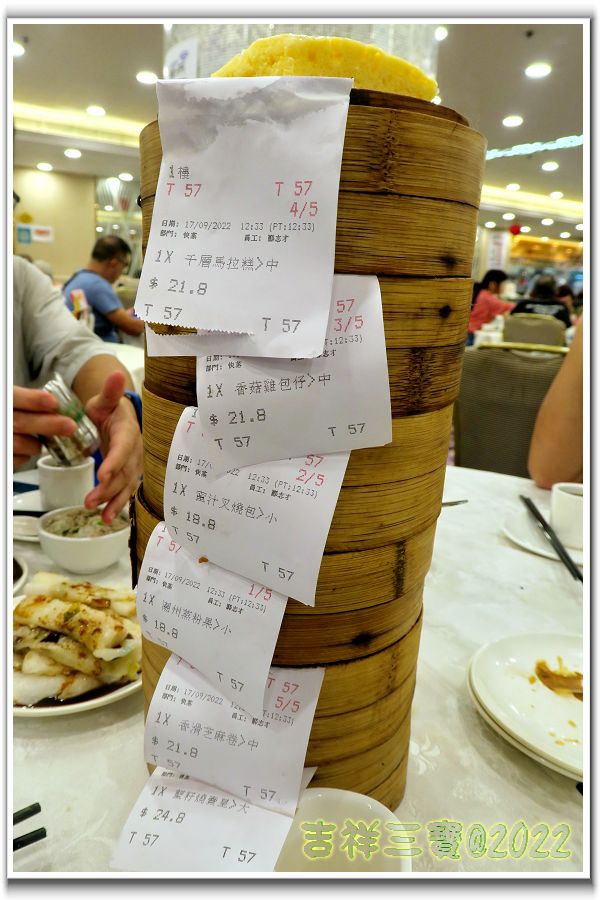 1樓
T 57 T 57
4/5
日期: 17/09/2022 12:33 (PT:12:33)
部門: 快蒸 員工: 鄒志才
1X 千層馬拉糕>中
$ 21.8
T 57 T 57
57
3/5
(PT:12:33)
1X 香菇雞包仔>中
$ 21.8
T 57 T 57
57
2/5
日期: 12:33 (PT:12:33)
部門: 快蒸
1X 蜜汁叉燒包>小
$ 18.8
T 57 T 57
1/5
日期: 17/09/2022 12:33 (PT:12:33)
部門: 快蒸
1X 潮州蒸粉果>小
$ 18.8
T 57 T 57
T 57 T 57
5/5
日期: 17/09/2022 12:33 (PT:12:33)
部門: 快蒸
1X 香滑芝麻卷>中
$ 21.8
T 57 T 57
1X 蟹籽燒賣皇>大
$ 24.8
T 57 T 57
吉祥三寶@2022